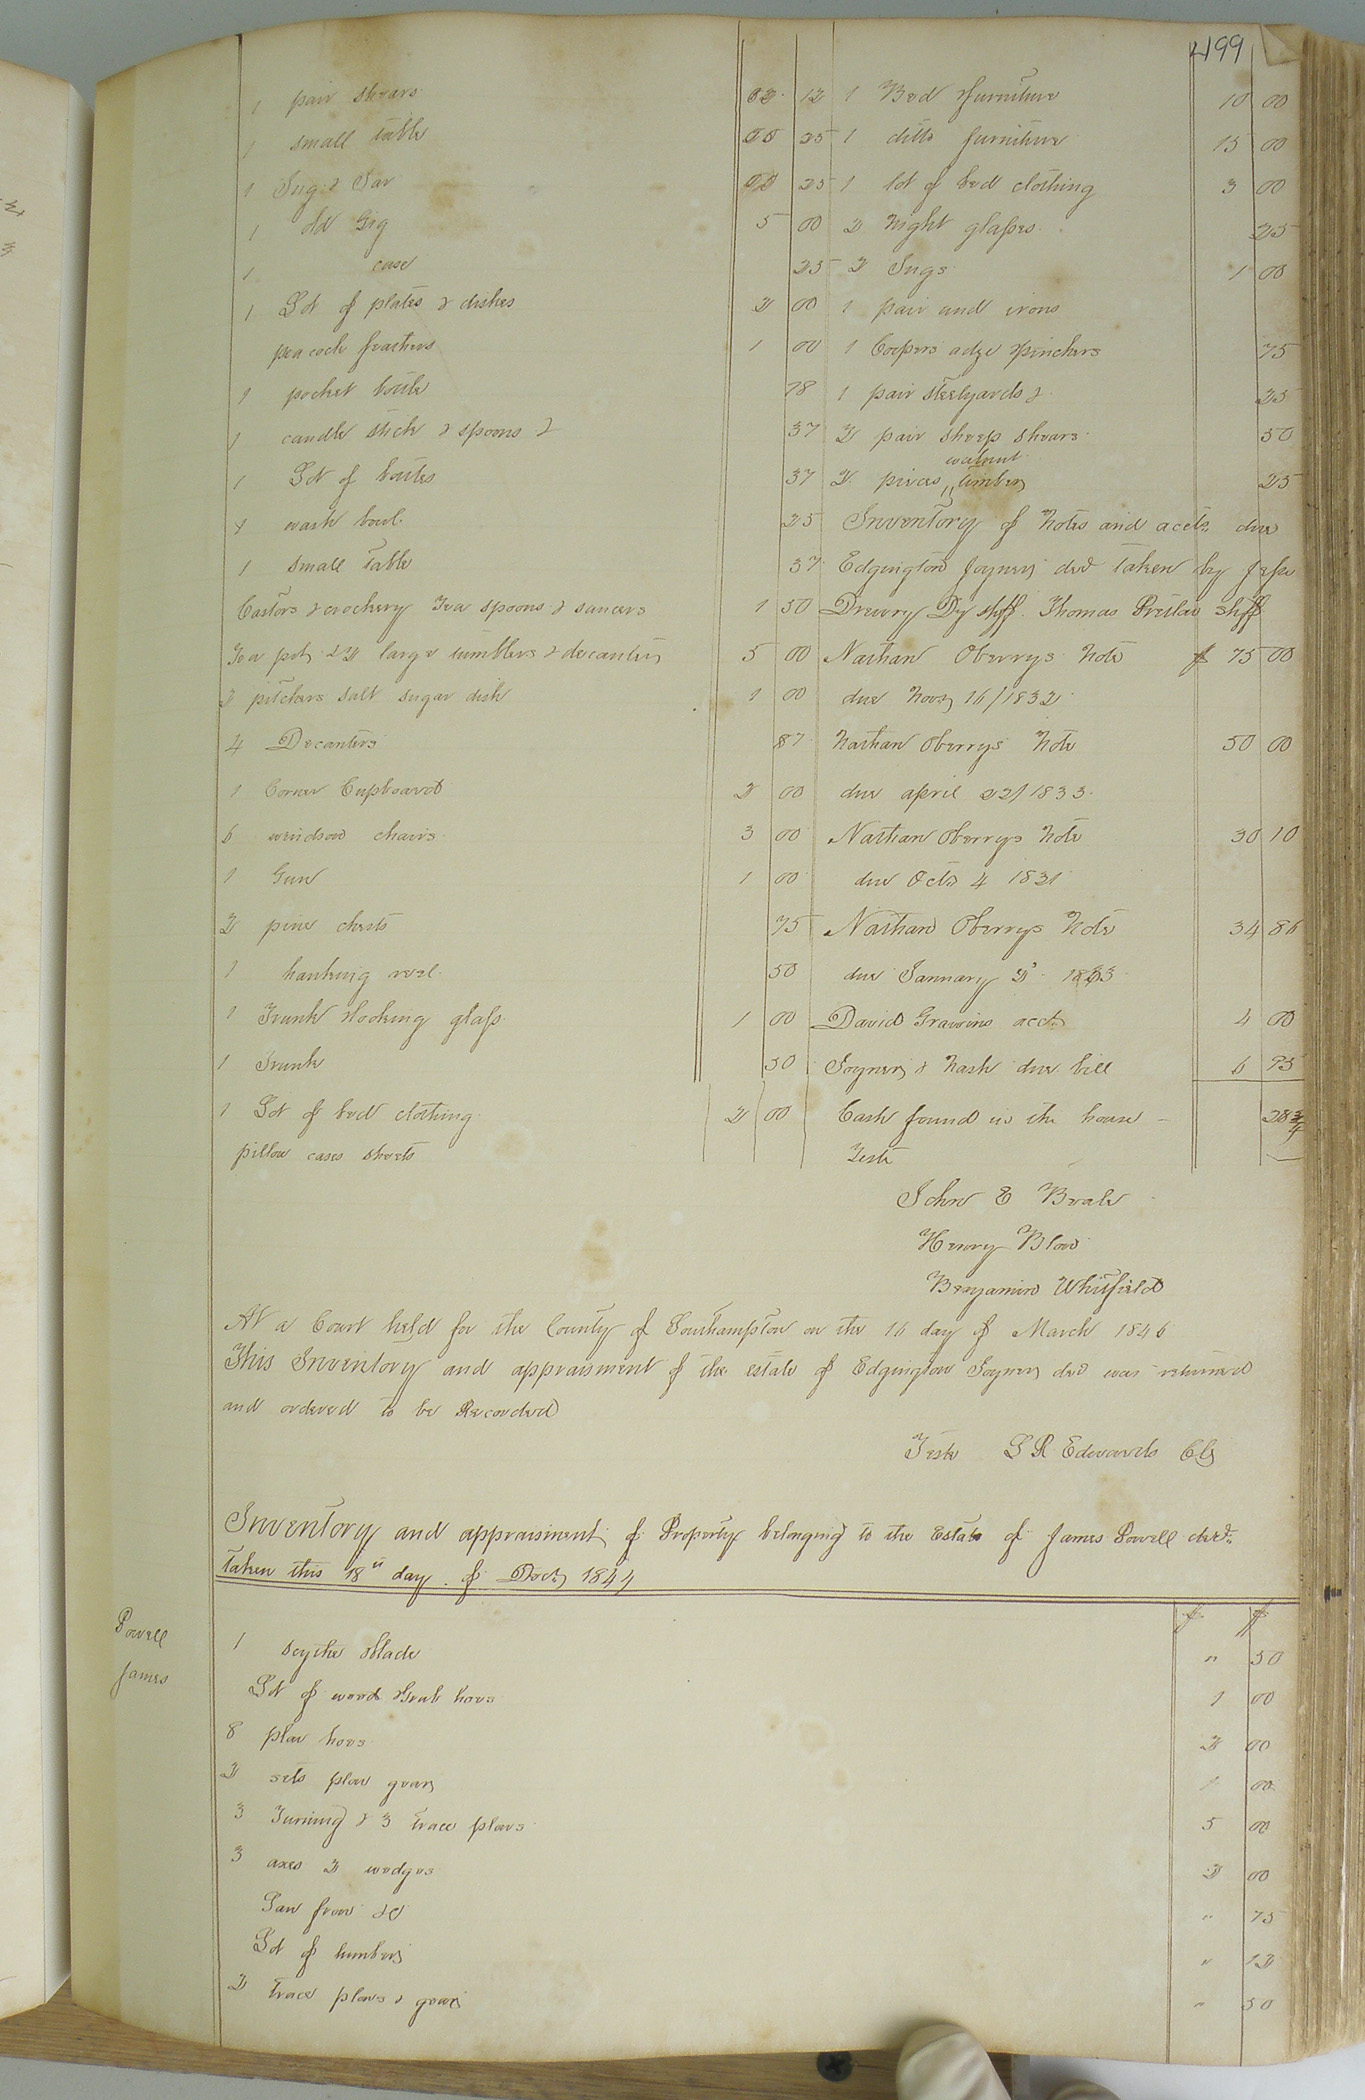 499
1 pair shears 02 12
1 small table 00 25
1 Jug & Jar 00 25
1 old Gig 5 00
1 case 25
1 Lot of plates & dishes 2 00
pea cock feathers 1 00
1 pocket bottle 78
1 candle stick & spoons & 37
1 Lot of bottles 37
1 wash bowl 25
1 small table 37
Castors & crockery Tea spoons & saucers 1 50
Tea pot & 2 large tumblers & decanters 5 00
2 pitchers salt sugar dish 1 00
4 Decanters 87
1 Corner Cupboard 2 00
6 windsor chairs 3 00
1 Gun 1 00
2 pine chests 75
1 hanking reel 50
1 Trunk & looking glass 1 00
1 Trunk 50
1 Lot of bed clothing 2 00
pillow cases sheets
1 Bed & furniture 10 00
1 ditto furniture 15 00
1 lot of bed clothing 3 00
2 night glasses 25
2 Jugs 1 00
1 pair and irons
1 Coopers adze & pinchers 75
1 pair steelyards & 25
2 pair sheep shears 50
walnut
2 pieces " timber 25
Inventory of Notes and accts due
Edgington Joyner decd taken by Jesse
Drewry Dy shff. Thomas Pretlow shff
Nathan Oberrys Note $ 75 00
due Novr 16/1832
Nathan Oberrys Note 50 00
due april 22/1833
Nathan Oberrys Note 30 10
due Octr 4 1831
Nathan Oberrys Note 34 86
due January 2 1833
David acct 4 00
Joyner & Nash due bill 6 95
Cash found in the house – 28 3/4
Teste
John E Beale
Henry Blow
Benjamin Whitfield
At a Court held for the County of Southampton on the 16 day of March 1846
This Inventory and appraisment of the estate of Edgington Joyner decd was returned
and ordered to be Recorded
Teste L R Edwards Clk
Inventory and appraisment of Property belonging to the Estate of James Powell decd.
taken this 18th day of Decr 1844
Powell
James
$ ¢
1 scythe & blade " 50
Lot of weed & Grub hoes 1 00
8 plow hoes 2 00
2 sets plow gear 1 00
3 Turning & 3 trace plows 5 00
3 axes 2 wedges 2 00
Saw frow &C " 75
Lot of lumber " 12
2 trace plows & gear " 50